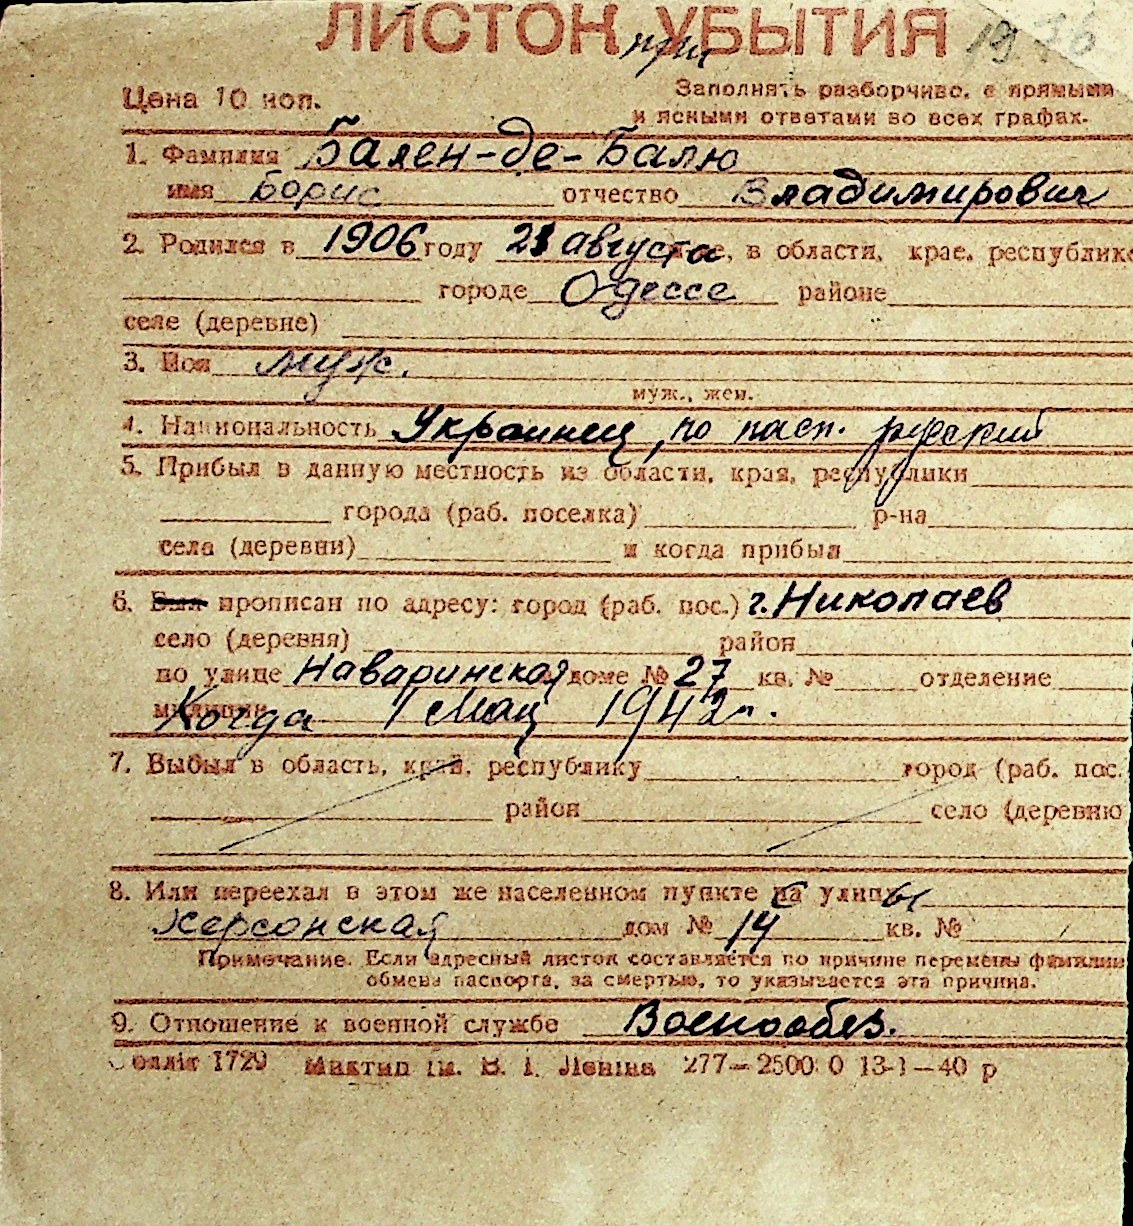 ЛИСТОК УБЫТИЯ
при
Цена 10 коп.
Заполнять разборчиво, с прямыми
и ясными ответами во всех графах.
1. Фамилия Бален-де-Балю
имя Борис отчество Владимирович
2. Родился в 1906 году 21 августа, в области, крае, республике
городе Одессе районе
селе (деревне)
3. Пол муж.
муж., жен.
4. Национальность Украинец, по пасп. русский
5. Прибыл в данную местность из области, края, республики
города (раб. поселка) р-на
села (деревни) и когда прибыл
6. Был прописан по адресу: город (раб. пос.) г. Николаев
село (деревня) район
по улице Наваринская доме № 27 кв. № отделение
милиции Когда 1 мая 1942 г.
7. Выбыл в область, край, республику город (раб. пос.
район село (деревню
8. Или переехал в этом же населенном пункте с улицы
Херсонская дом № 14 кв. №
Примечание. Если адресный листок составляется по причине перемены фамилии
обмена паспорта, за смертью, то указывается эта причина.
9. Отношение к военной службе Военнообяз.
1729 ім. В. І. Леніна 277—2500 0 13-1—40 р